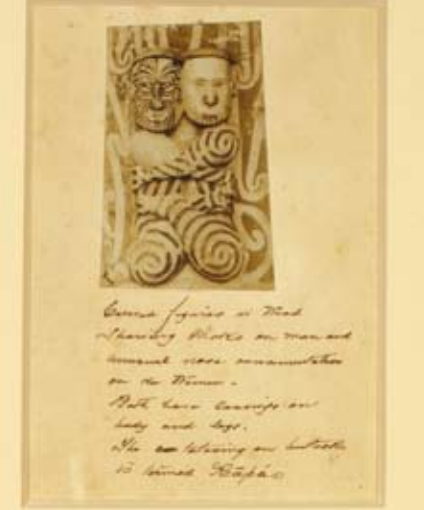 Carved figures in Wood
Showing Moko on man and
unusual nose ornamentation
on the Woman.
Both have carvings on
body and legs.
The tattooing on buttocks
is termed Rāpā